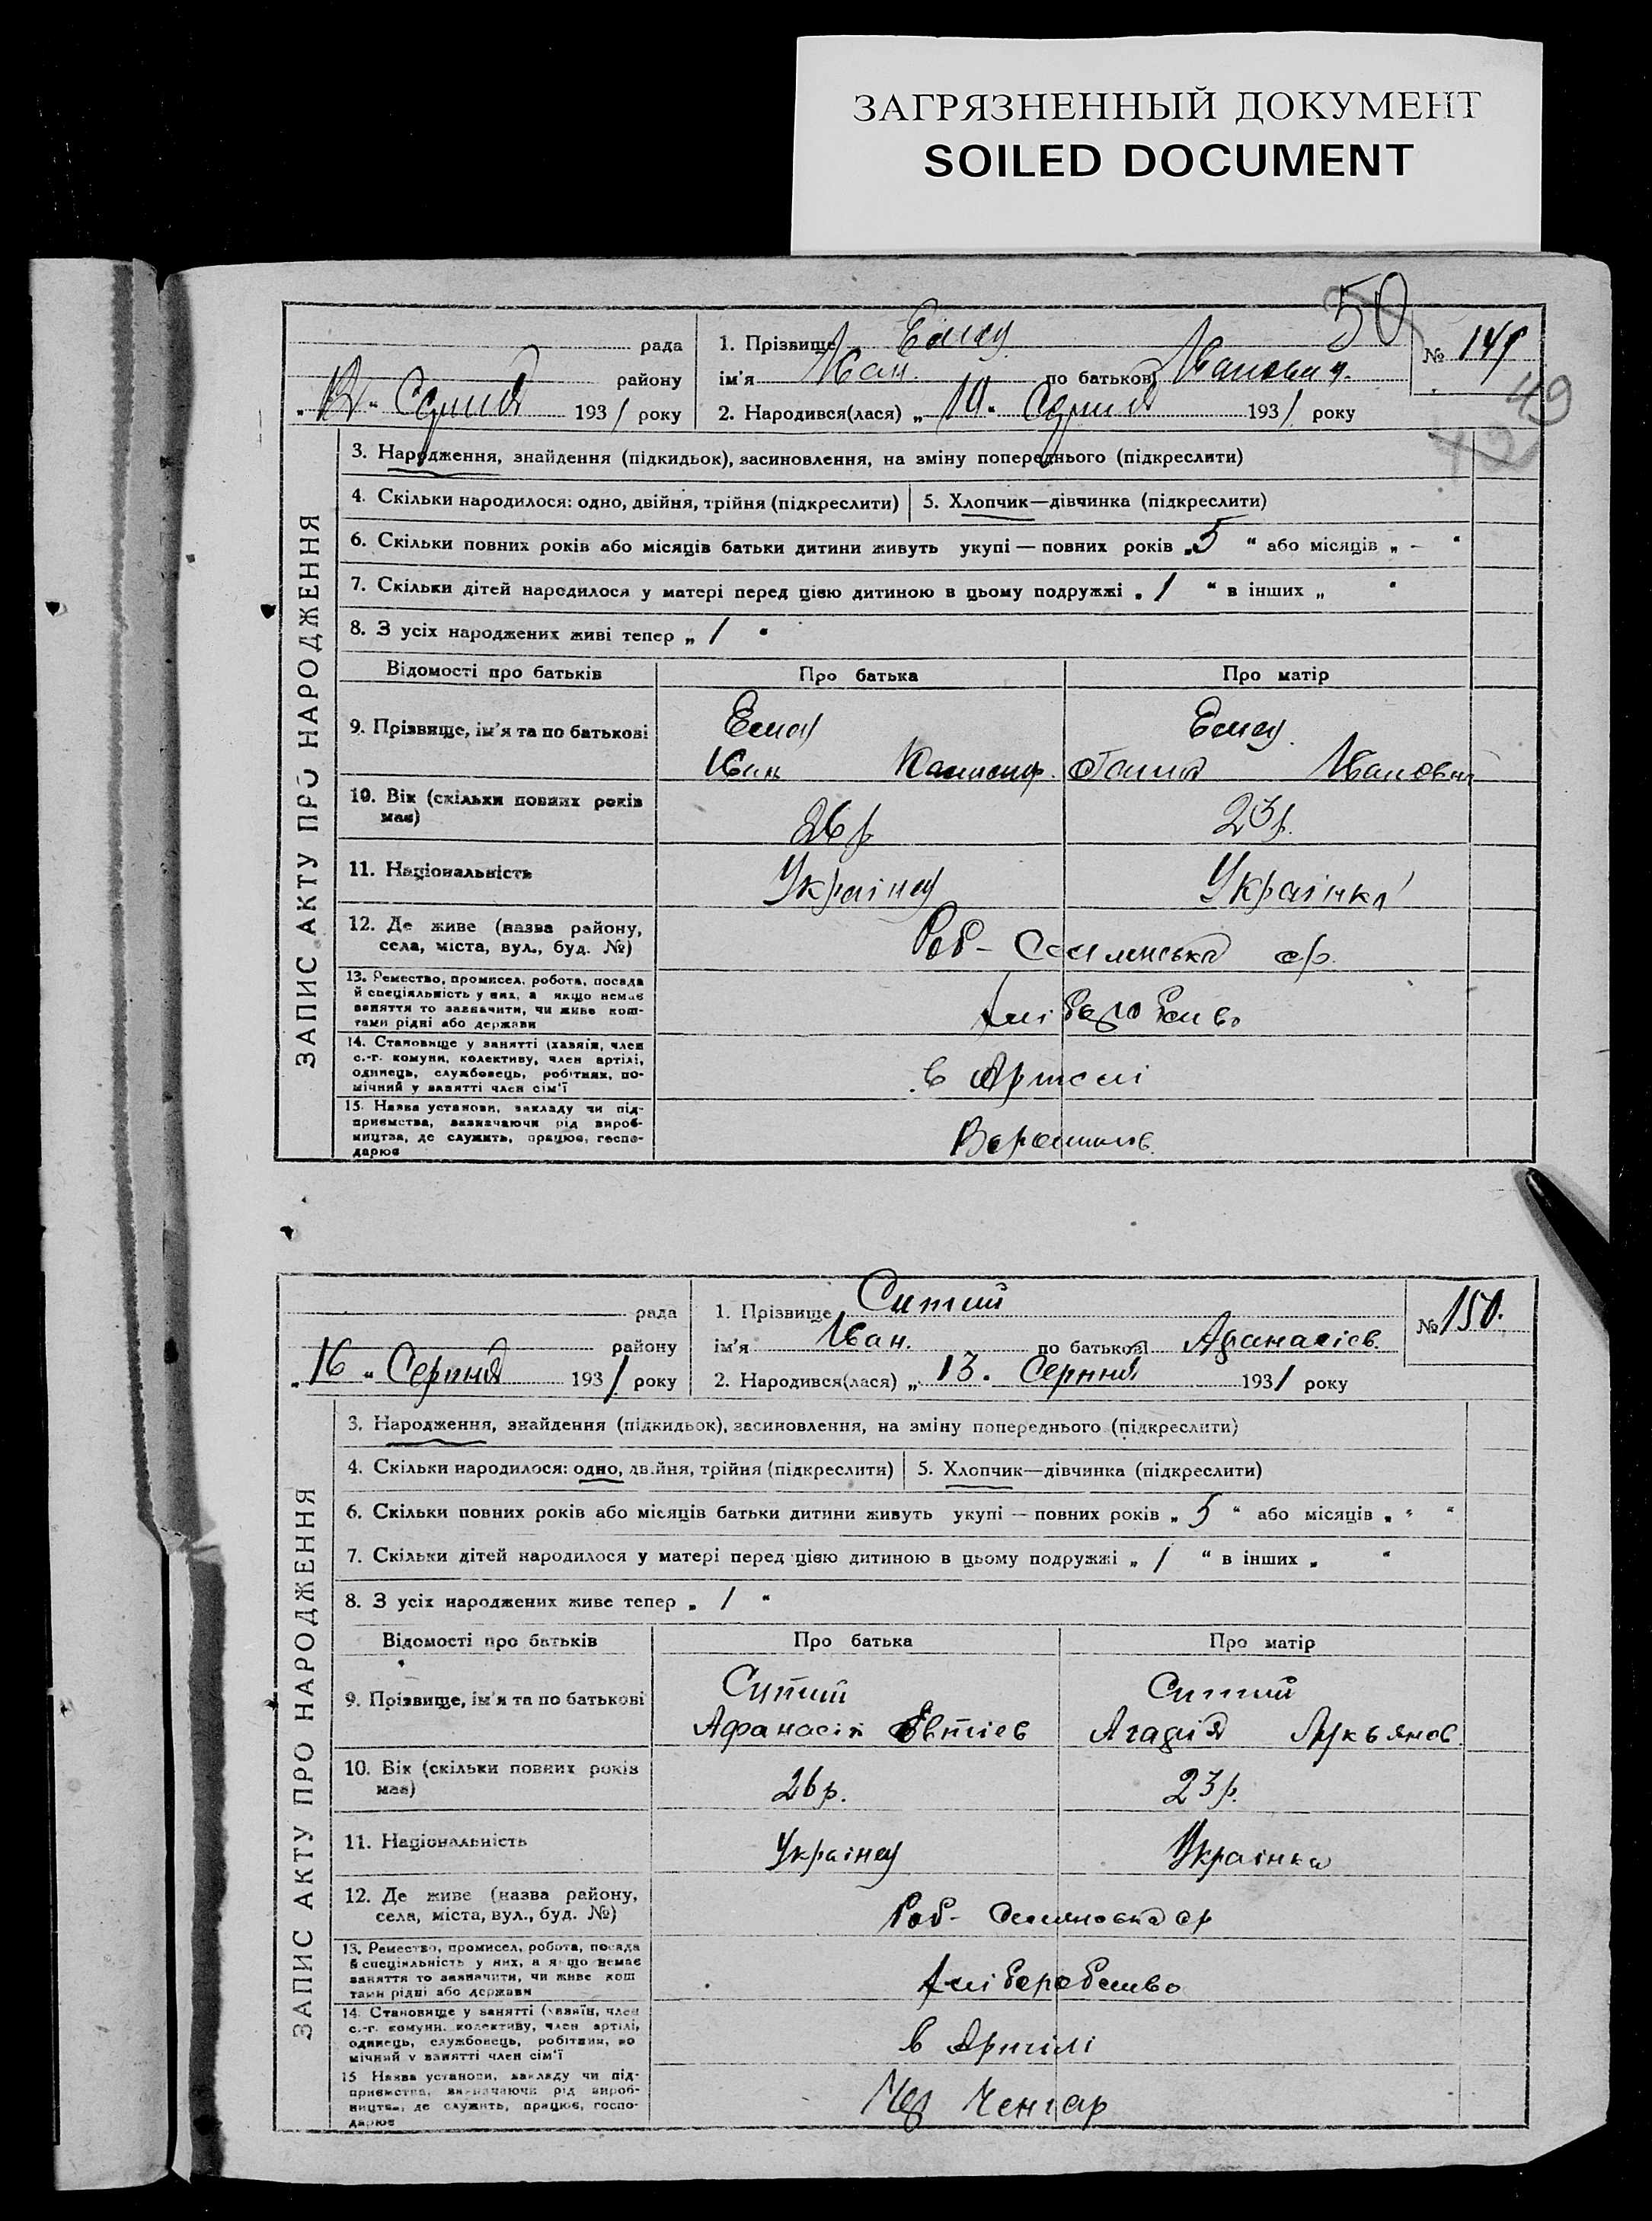 ЗАГРЯЗНЕННЫЙ ДОКУМЕНТ
SOILED DOCUMENT
50
рада
1. Прізвище
№ 149
району
ім'я Иван по батькові Иванович.
49
" 1931 року
2. Народився(лася) „ 1931 року
ЗАПИС АКТУ ПРО НАРОДЖЕННЯ
3. Народження, знайдення (підкидьок), засиновлення, на зміну попереднього (підкреслити)
4. Скільки народилося: одно, двійня, трійня (підкреслити)
5. Хлопчик—дівчинка (підкреслити)
6. Скільки повних років або місяців батьки дитини живуть укупі — повних років „5" або місяців „-"
7. Скільки дітей народилося у матері перед цією дитиною в цьому подружжі „1" в інших „ "
8. З усіх народжених живі тепер „1"
Відомості про батьків
Про батька
Про матір
9. Прізвище, ім'я та по батькові
Иван
10. Вік (скільки повних років має)
26 р
23 р.
11. Національність
Українец
Українка
12. Де живе (назва району, села, міста, вул., буд. №)
13. Ремество, промисел, робота, посада
й спеціяльність у них, а якщо немає
заняття то зазначити, чи живе кош-
тами рідні або держави
Хліборобство
14. Становище у занятті (хазяїн, член
с.-г. комуни, колективу, член артілі,
одинець, службовець, робітник, по-
мічний у занятті член сім'ї
в Артелі
15. Назва установи, закладу чи під-
приємства, зазначаючи рід вироб-
ництва, де служить, працює, госпо-
дарює
рада
1. Прізвище Ситий
№ 150.
району
ім'я Иван. по батькові Афанасієв.
„16" Серпня 1931 року
2. Народився(лася) „13" Серпня 1931 року
ЗАПИС АКТУ ПРО НАРОДЖЕННЯ
3. Народження, знайдення (підкидьок), засиновлення, на зміну попереднього (підкреслити)
4. Скільки народилося: одно, двійня, трійня (підкреслити)
5. Хлопчик—дівчинка (підкреслити)
6. Скільки повних років або місяців батьки дитини живуть укупі — повних років „5" або місяців „ "
7. Скільки дітей народилося у матері перед цією дитиною в цьому подружжі „1" в інших „ "
8. З усіх народжених живе тепер „1"
Відомості про батьків
Про батька
Про матір
9. Прізвище, ім'я та по батькові
Ситий
Ситий
Афанасій Євтіев
Лукьянов.
10. Вік (скільки повних років має)
26 р.
23 р.
11. Національність
Українец
Українка
12. Де живе (назва району, села, міста, вул., буд. №)
13. Ремество, промисел, робота, посада
й спеціяльність у них, а якщо немає
заняття то зазначити, чи живе кош
тами рідні або держави
Хліборобство
14. Становище у занятті (хазяїн, член
с.-г. комуни, колективу, член артілі,
одинець, службовець, робітник, по
мічний у занятті член сім'ї
в Артілі
15 Назва установи, закладу чи під-
приємства, зазначаючи рід вироб-
ництва, де служить, працює, госпо-
дарює
Ченгар